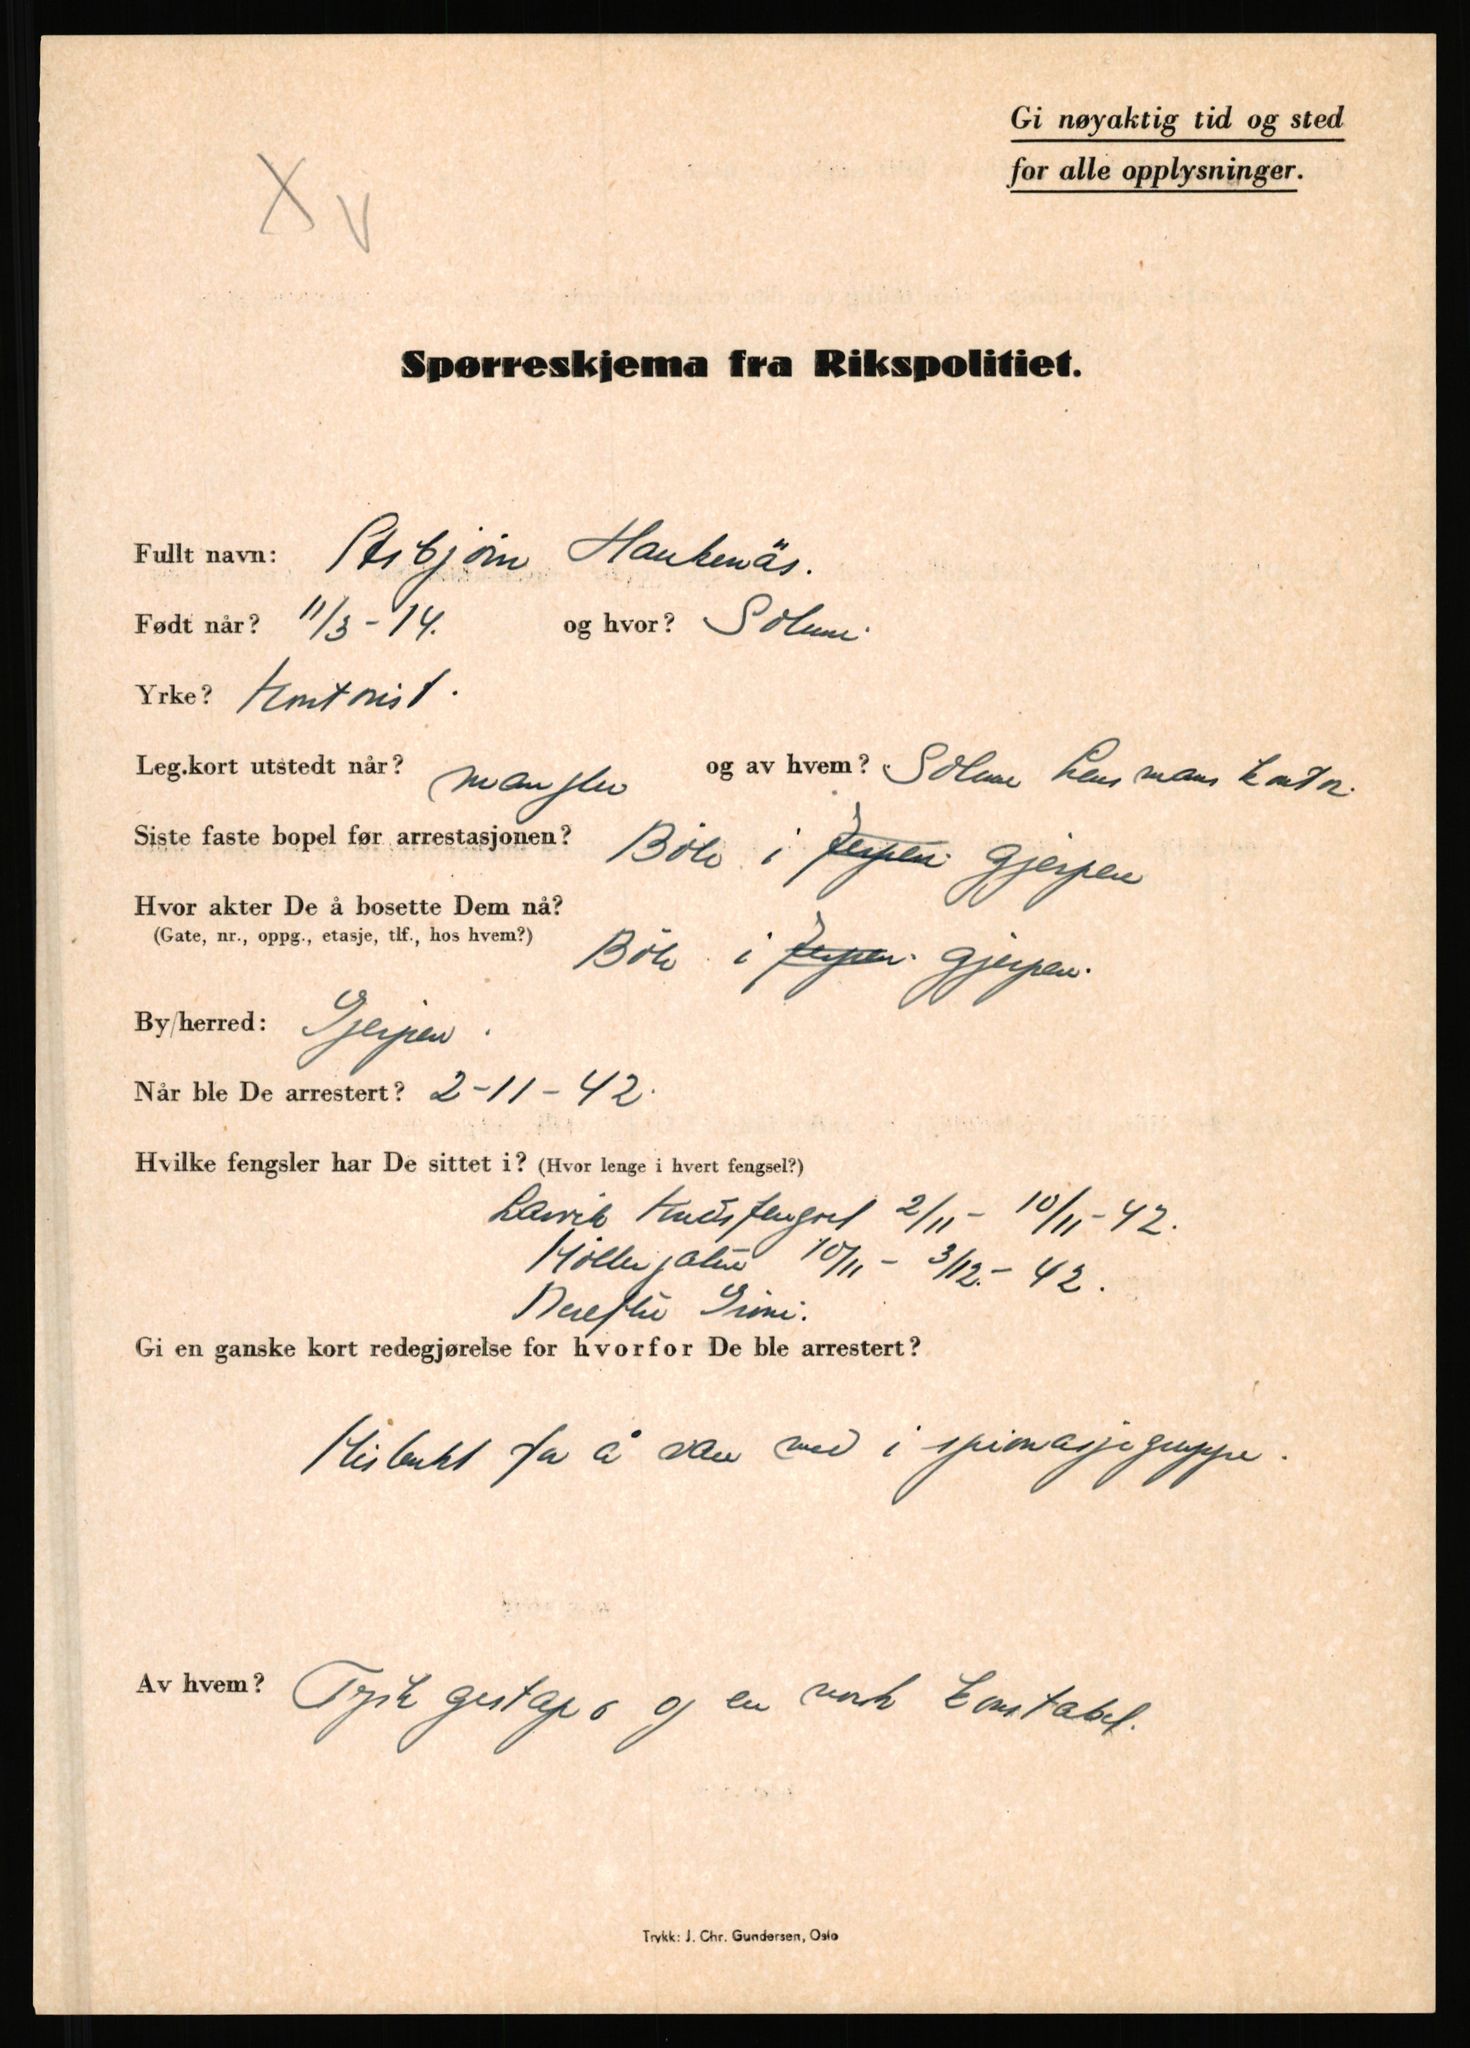 Gi nøyaktig tid og sted
for alle opplysninger.
X V
Spørreskjema fra Rikspolitiet.
Fullt navn: Asbjörn Haukenäs.
Født når? 11/3-14. og hvor? Solum.
Yrke? Kontorist.
Leg.kort utstedt når? mangler og av hvem? Solum Lensmans kontor.
Siste faste bopel før arrestasjonen? Böle i Jerpen Gjerpen
Hvor akter De å bosette Dem nå?
(Gate, nr., oppg., etasje, tlf., hos hvem?) Böle i Jerpen. Gjerpen.
By/herred: Gjerpen.
Når ble De arrestert? 2-11-42.
Hvilke fengsler har De sittet i? (Hvor lenge i hvert fengsel?)
Larvik fengsel 2/11- 10/11-42.
Møllergaten 10/11- 3/12.- 42.
Derefter Grini.
Gi en ganske kort redegjørelse for hvorfor De ble arrestert?
Mistenkt for å være med i spionasjegruppe.
Av hvem? Tysk gestapo og en norsk konstabel.
Trykk: J. Chr. Gundersen, Oslo